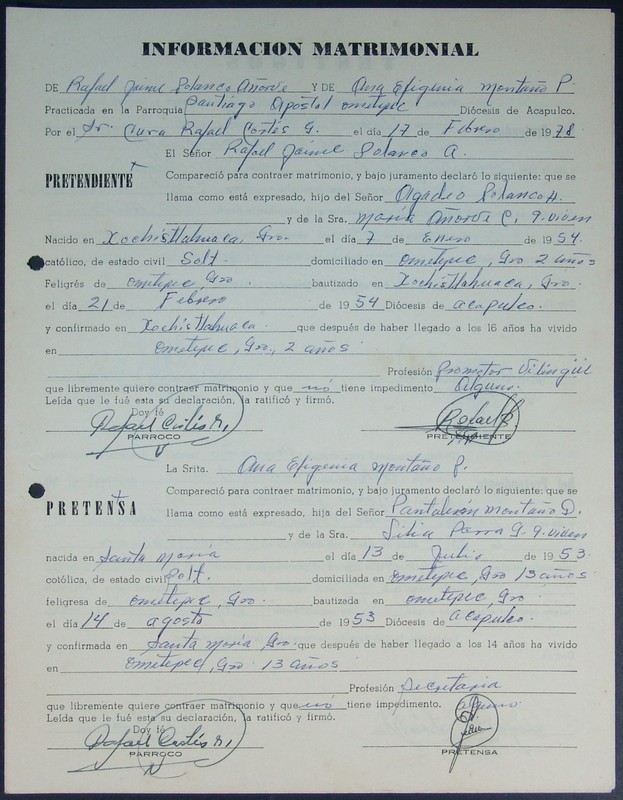 INFORMACION MATRIMONIAL
DE Rafael Jaime Solanco Añorve Y DE Ana Efigenia Montaño P.
Practicada en la Parroquia Santiago Apostol Ometepec Diócesis de Acapulco.
Por el Sr. Cura Rafael Cortés G. el día 17 de Febrero de 1978
El Señor Rafael Jaime Solanco A.
PRETENDIENTE
Compareció para contraer matrimonio, y bajo juramento declaró lo siguiente: que se
llama como está expresado, hijo del Señor Solanco H.
y de la Sra. María Añorve C, q. viven
Nacido en Xochistlahuaca, Gro. el día 7 de Enero de 1954.
católico, de estado civil Solt. domiciliado en Ometepec, Gro 2 años
Feligrés de Ometepec, Gro bautizado en Xochistlahuaca, Gro.
el día 21 de Febrero de 1954 Diócesis de Acapulco.
y confirmado en Xochistlahuaca que después de haber llegado a los 16 años ha vivido
en Ometepec, Gro, 2 años
Profesión Promotor Vilingüe
que libremente quiere contraer matrimonio y que nó tiene impedimento Alguno.
Leída que le fué esta su declaración, la ratificó y firmó.
Doy fé
Rafael Cortés
PARROCO
Rafael
PRETENDIENTE
La Srita. Ana Efigenia Montaño P.
PRETENSA
Compareció para contraer matrimonio, y bajo juramento declaró lo siguiente: que se
llama como está expresado, hijo del Señor Pantaleón Montaño D.
y de la Sra. Silia Parra G. q. viven
nacida en Santa María el día 13 de Julio de 1953.
cotólica, de estado civil Solt. domiciliada en Ometepec, Gro 13 años
feligresa de Ometepec, Gro. bautizada en Ometepec, Gro
el día 14 de agosto de 1953 Diócesis de Acapulco.
y confirmada en Santa María, Gro. que después de haber llegado a los 14 años ha vivido
en Ometepec, Gro 13 años
Profesión Secretaria
que libremente quiere contraer matrimonio y que nó tiene impedimento. alguno
Leída que le fué esta su declaración, la ratificó y firmó.
Doy fé
Rafael Cortés
PARROCO
PRETENSA